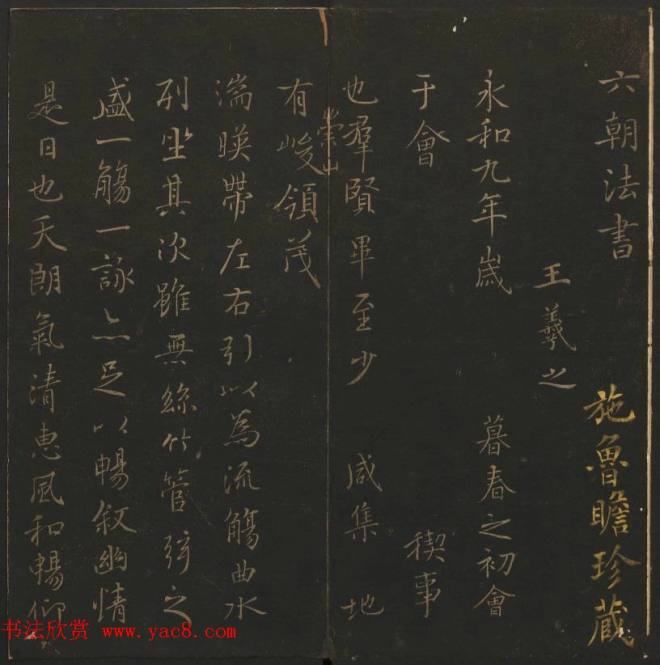 六朝法書
施魯瞻珍蔵
王羲之
永和九年歲 暮春之初會
于會 稧事
也羣賢畢至少 咸集 地
有崇山峻領茂
湍暎帶左右引以為流觴曲水
列坐其次雖無絲竹管弦之
盛一觴一詠亦足以暢叙幽情
是日也天朗氣清惠風和暢仰
书法欣赏 www.yac8.com